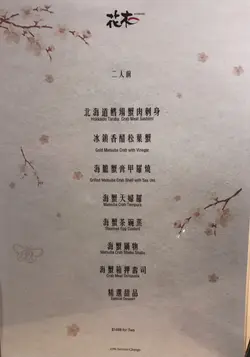 花木
二人前
北海道鱈場蟹肉刺身
Hokkaido Taraba Crab Meat Sashimi
冰鎮香醋松葉蟹
Cold Matsuba Crab with Vinegar
海膽蟹膏甲羅燒
Grilled Matsuba Crab Shell with Sea Urchin
海蟹天婦羅
Matsuba Crab Tempura
海蟹茶碗蒸
Steamed Egg Custard
海蟹鍋物
Matsuba Crab Shabu Shabu
海蟹箱押壽司
Crab Meat Oshizushi
精選甜品
Special Dessert
for Two